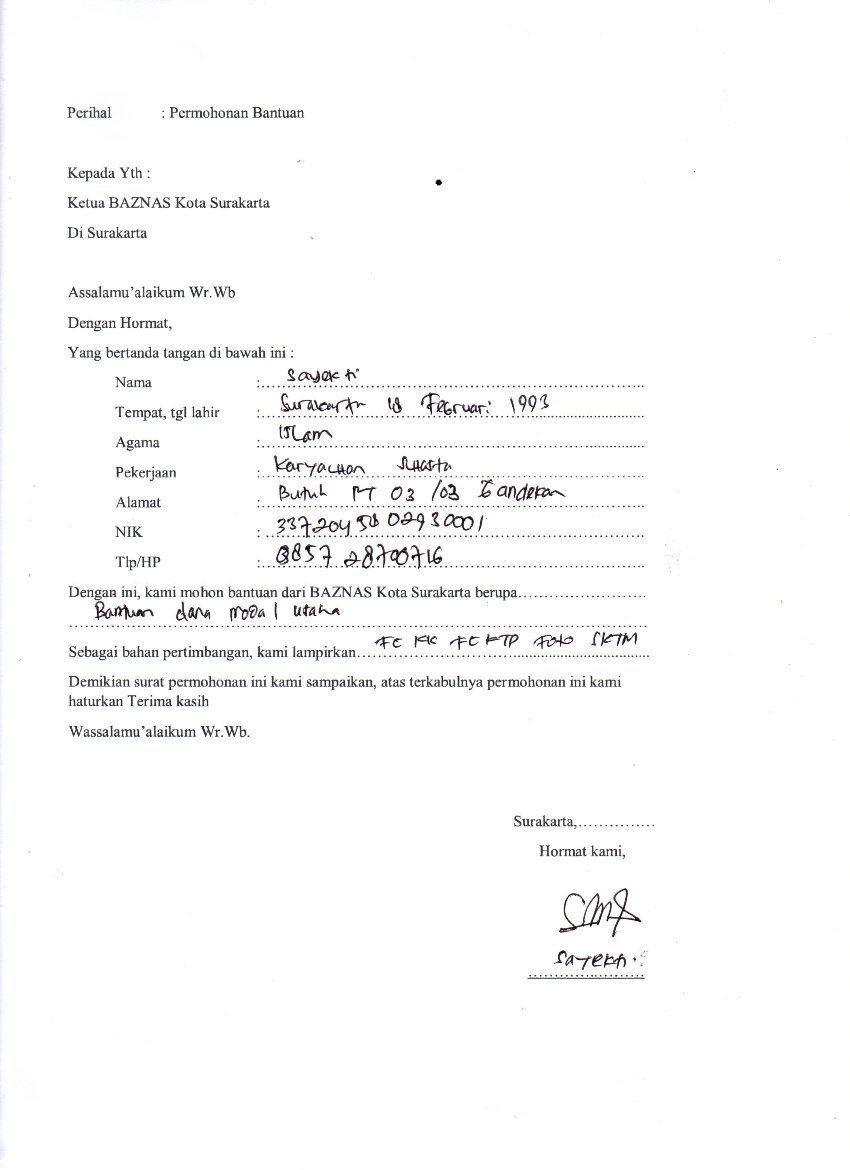 Perihal : Permohonan Bantuan
Kepada Yth :
Ketua BAZNAS Kota Surakarta
Di Surakarta
Assalamu’alaikum Wr.Wb
Dengan Hormat,
Yang bertanda tangan di bawah ini :
Nama : Sayekti
Tempat, tgl lahir : Surakarta 18 Februari 1993
Agama : Islam
Pekerjaan : Karyawan Swasta
Alamat : Butuh RT 03 /03
NIK : 3372045802930001
Tlp/HP : 085728700716
Dengan ini, kami mohon bantuan dari BAZNAS Kota Surakarta berupa........................
Bantuan dana modal usaha
Sebagai bahan pertimbangan, kami lampirkan... FC KK FC KTP Foto SKTM
Demikian surat permohonan ini kami sampaikan, atas terkabulnya permohonan ini kami
haturkan Terima kasih
Wassalamu’alaikum Wr.Wb.
Surakarta,...............
Hormat kami,
Sayekti